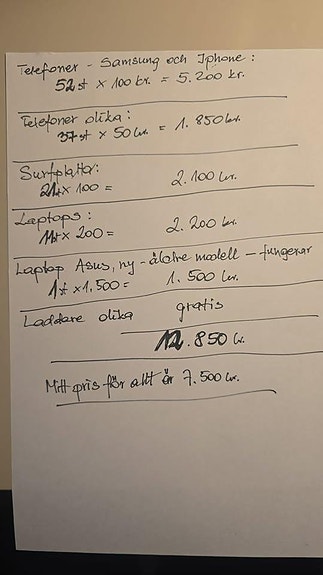 Telefoner - Samsung och Iphone:
52 st x 100 kr. = 5.200 kr.
Telefoner olika:
37 st x 50 kr. = 1.850 kr.
Surfplattor:
21st x 100 = 2.100 kr.
Laptops:
11st x 200 = 2.200 kr.
Laptop Asus, ny - äldre modell - fungerar
1st x 1.500 = 1.500 kr.
Laddare olika gratis
12.850 kr.
Mitt pris för allt är 7.500 kr.